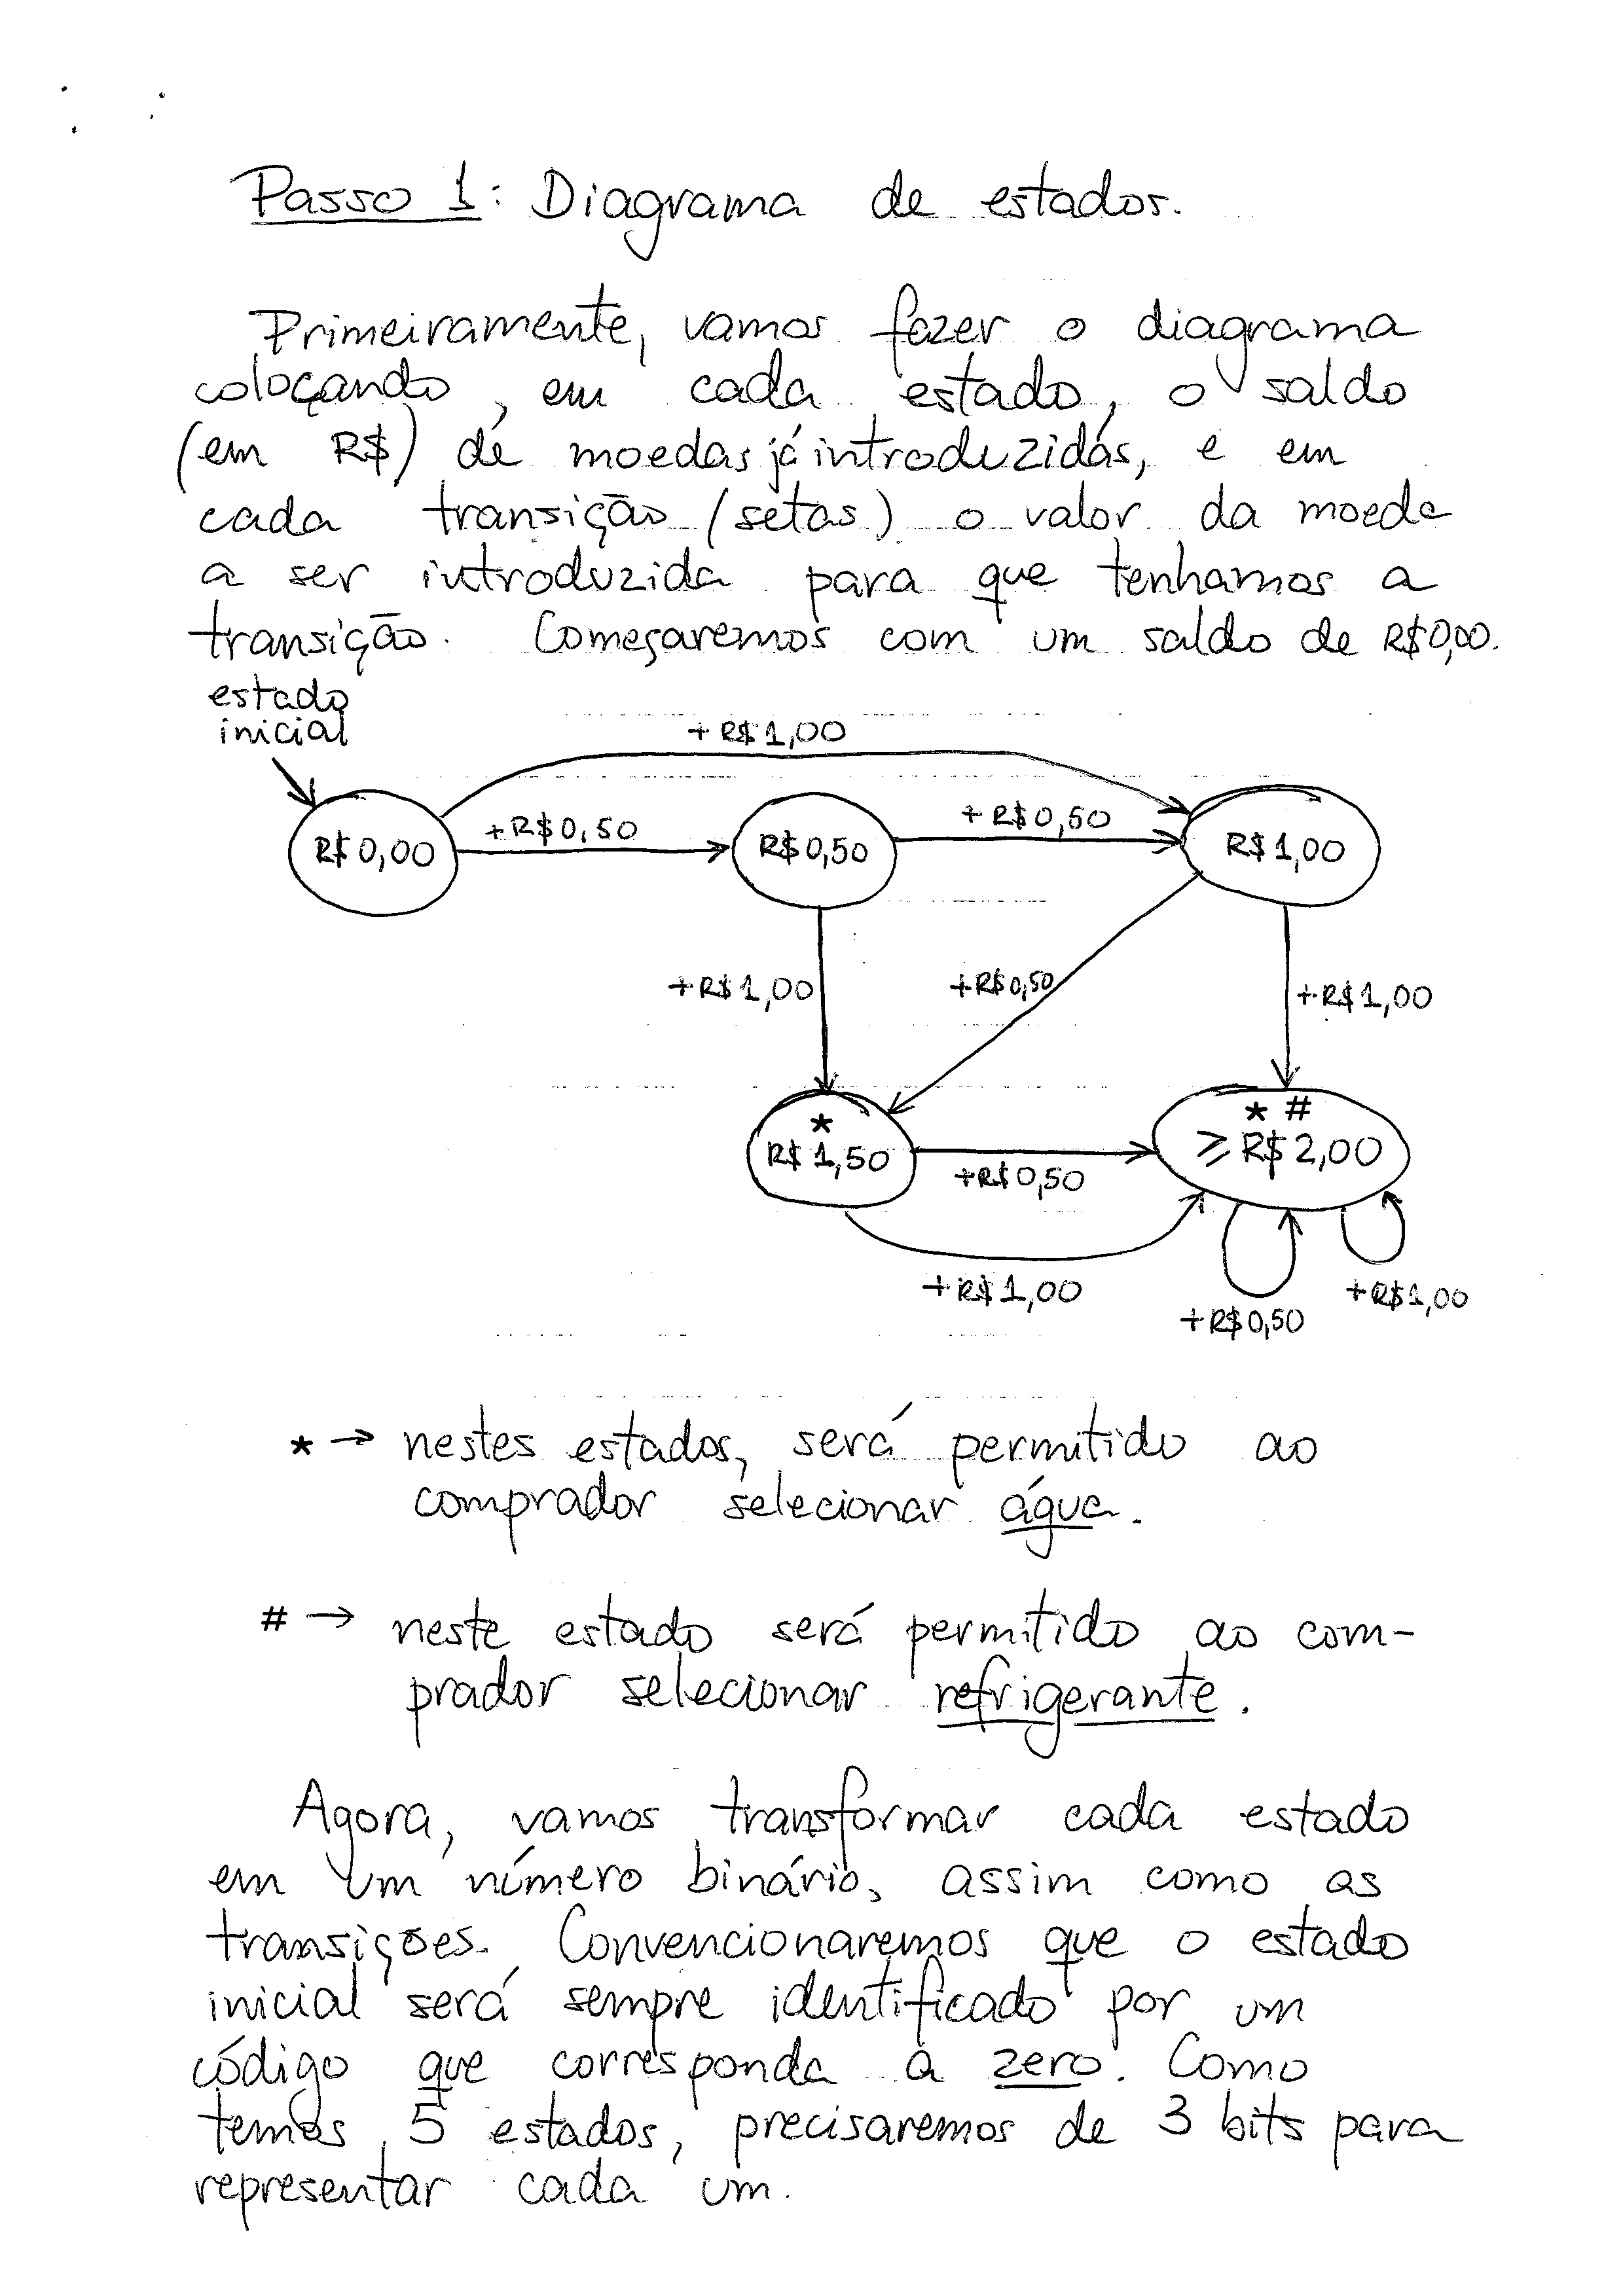 Passo 1: Diagrama de estados.
Primeiramente, vamos fazer o diagrama
colocando, em cada estado, o saldo
(em R$) de moedas já introduzidas, e em
cada transição (setas) o valor da moeda
a ser introduzida para que tenhamos a
transição. Começaremos com um saldo de R$0,00.
estado
inicial
+R$1,00
R$0,00
+R$0,50
R$0,50
+R$0,50
R$1,00
+R$1,00
+R$0,50
+R$1,00
*
R$1,50
+R$0,50
* #
≥R$2,00
+R$1,00
+R$0,50
+R$1,00
* → nestes estados, será permitido ao
comprador selecionar água.
# → neste estado será permitido ao com-
prador selecionar refrigerante.
Agora, vamos transformar cada estado
em um número binário, assim como as
transições. Convencionaremos que o estado
inicial será sempre identificado por um
código que corresponda a zero. Como
temos 5 estados, precisaremos de 3 bits para
representar cada um.